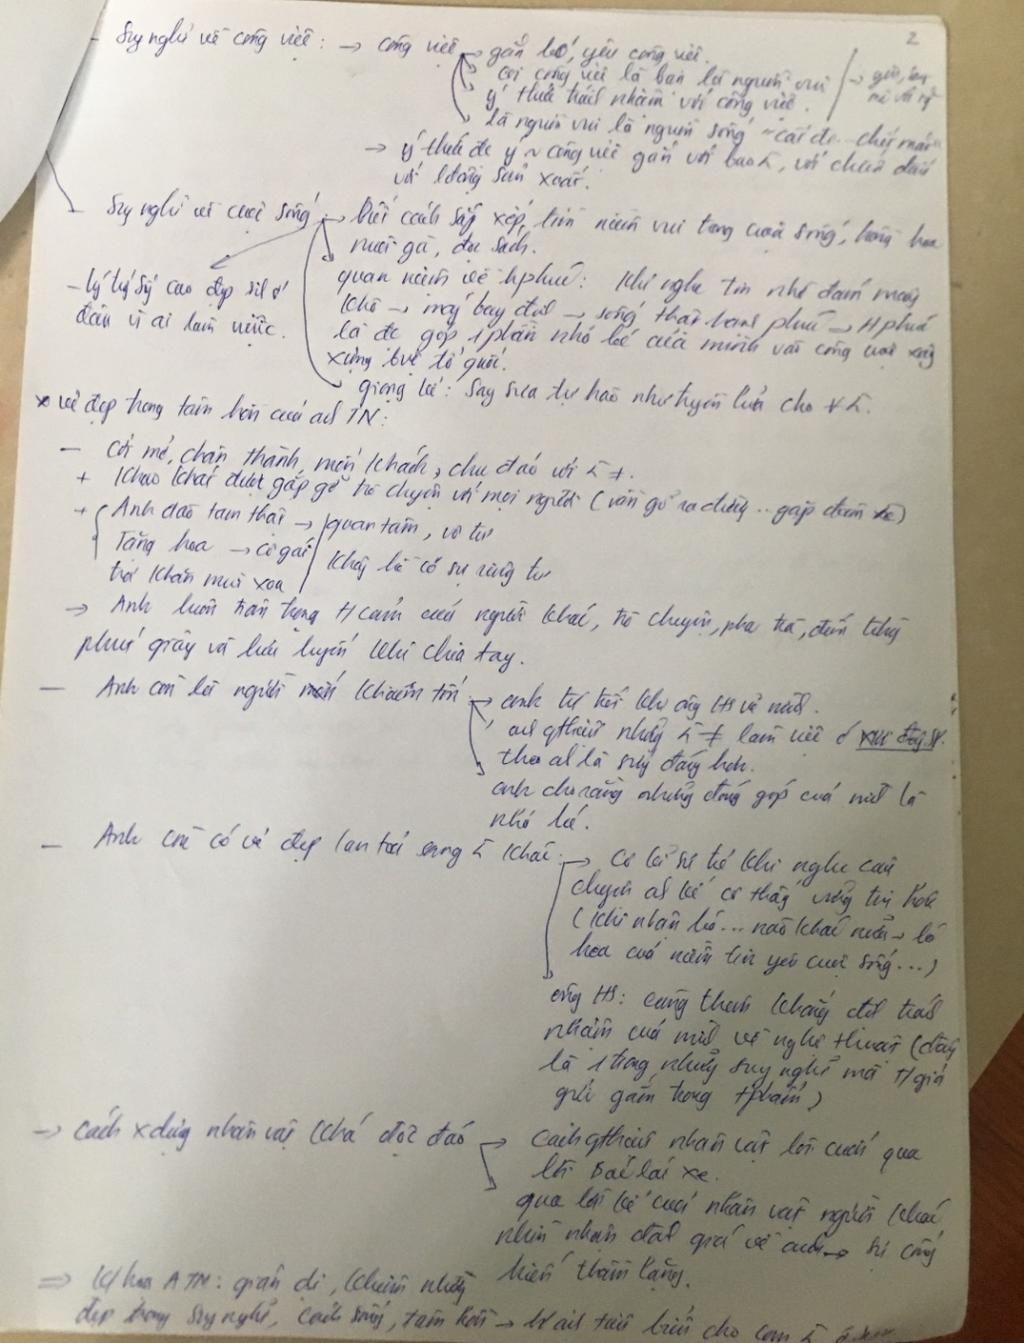 2
- Suy nghĩ về công việc: → công việc → gắn bó, yêu công việc.
coi công việc là bạn là người vui
ý thức trách nhiệm với công việc.
là người vui là người sống
→ ý thức đc ý ~ công việc gắn với bao Σ, với chiến đấu
với lđộng sản xuất.
- Suy nghĩ về cuộc sống → Biết cách sắp xếp, tìm niềm vui trong cuộc sống, trồng hoa
nuôi gà, đọc sách.
quan niệm về hphúc: Khi nghe tin nhờ đám mây
khô → máy bay địch → sống thật hạnh phúc → Hphúc
là đc góp 1 phần nhỏ bé của mình vào công cuộc xây
dựng tổ quốc.
- lý tưởng cao đẹp
vì ai làm việc.
giọng kể: say sưa tự hào như truyền lửa cho
* vẻ đẹp trong tâm hồn của a TN:
- Cởi mở, chân thành, mến khách, chu đáo với Σ ≠.
+ Khao khát được gặp gỡ trò chuyện với mọi người (vần gỗ ra đường .. gặp đoàn xe)
+ Anh đào tam thất → quan tâm, vô tư
Tặng hoa → cô gái
trả khăn mùi xoa
Không hề có sự riêng tư
→ Anh luôn trân trọng tcảm của người khác, trò chuyện, pha trà, đếm từng
phút giây và lưu luyến khi chia tay.
- Anh còn là người khiêm tốn → anh từ chối khi ông HS vẽ mình.
a gthiệu những Σ ≠ làm việc ở
theo a là xứng đáng hơn.
anh cho rằng những đóng góp của mình là
nhỏ bé.
- Anh còn có vẻ đẹp lan toả sang Σ khác → Cô kĩ sư trẻ khi nghe câu
chuyện a kể cô thấy vững tin hơn
(khi nhận bó ... nào khác nữa → bó
hoa của niềm tin yêu cuộc sống ...)
ông HS: càng thêm khẳng định trách
nhiệm của mình về nghệ thuật (đây
là 1 trong những suy nghĩ mà t/giả
gửi gắm trong tphẩm)
→ Cách xdựng nhân vật khá độc đáo → cách gthiệu nhân vật lôi cuốn qua
lời bác lái xe.
qua lời kể của nhân vật người khác
nhìn nhận đánh giá về anh → sự cống
hiến thầm lặng.
⇒ K/hoạ ATN: giản dị, khiêm nhường
đẹp trong suy nghĩ, cách sống, tâm hồn → tiêu biểu cho